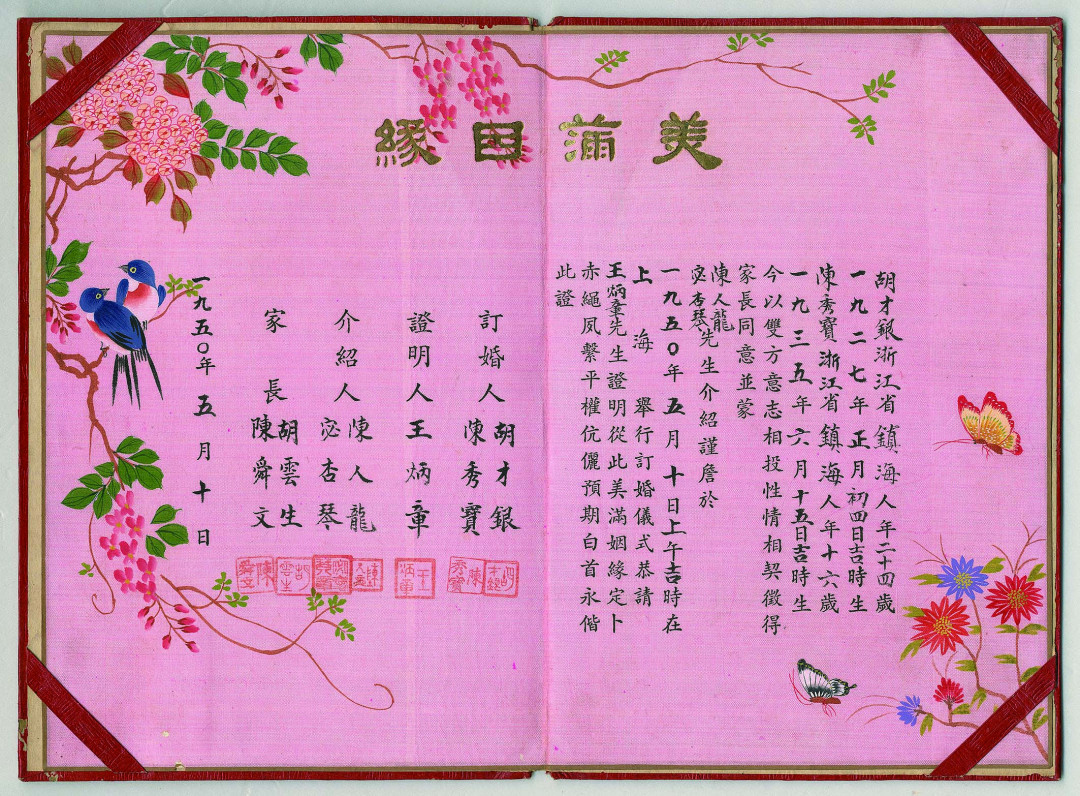 美滿因緣
胡才銀浙江省鎮海人年二十四歲
一九二七年正月初四日吉時生
陳秀寶浙江省鎮海人年十六歲
一九三五年六月十五日吉時生
今以雙方意志相投性情相契徵得
家長同意並蒙
陳人龍
宓杏琴先生介紹謹詹於
一九五〇年五月十日上午吉時在
上海舉行訂婚儀式恭請
王炳章先生證明從此美滿姻緣定卜
赤繩夙繫平權伉儷預期白首永偕
此證
訂婚人胡才銀
陳秀寶
證明人王炳章
介紹人陳人龍
宓杏琴
家長胡雲生
陳舜文
一九五〇年五月十日
胡才銀
陳秀寶
王炳章
陳人龍
胡雲生
陳舜文